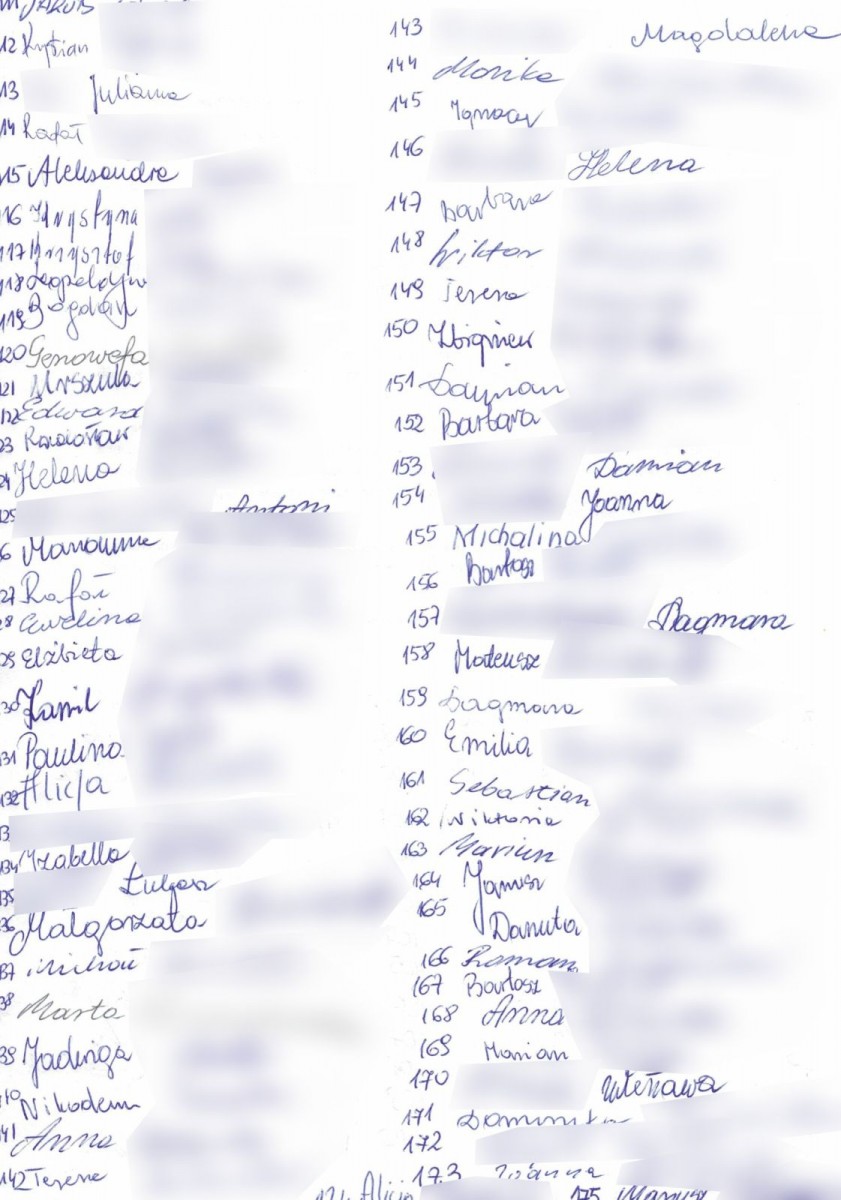 Jakub
12 Krystian
13 Julianna
14 Rafał
15 Aleksandra
116 Krystyna
117 Krzysztof
118
119 Bogdan
120 Genowefa
121 Urszula
122 Edward
23
24 Helena
125 Antoni
6 Marianna
27 Rafał
28 Ewelina
29 Elżbieta
130 Kamil
131 Paulina
132 Alicja
13
134 Izabella
135 Łukasz
136 Małgorzata
137 Michał
138 Marta
139 Jadwiga
140 Nikodem
141 Anna
142 Terene
143 Magdalena
144 Monika
145 Ignacy
146 Helena
147 Barbara
148 Wiktor
149 Teresa
150 Zbigniew
151 Damian
152 Barbara
153 Damian
154 Joanna
155 Michalina
156 Bartosz
157 Dagmara
158 Mateusz
159 Dagmara
160 Emilia
161 Sebastian
162 Wiktoria
163 Mariusz
164 Janusz
165 Danuta
166 Roman
167 Bartosz
168 Anna
169 Marian
170 Wiesława
171 Dominika
172
173 Joanna
174 Alicja
175 Mariusz